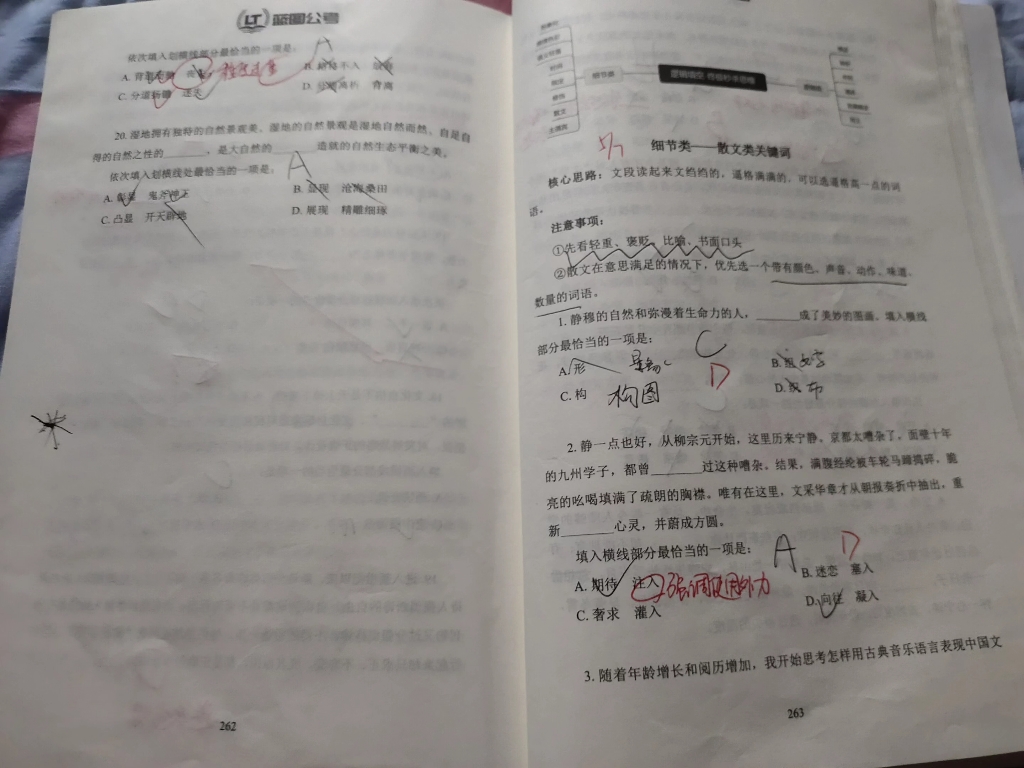 LT 蓝图公考
依次填入划横线部分最恰当的一项是:
A
A. 背道而驰
C. 分道扬镳
D. 分崩离析 背离
20. 湿地拥有独特的自然景观美。湿地的自然景观是湿地自然而然、自是自
得的自然之性的______，是大自然的______造就的自然生态平衡之美。
依次填入划横线处最恰当的一项是:
A
A. 彰显 鬼斧神工
B. 显现 沧海桑田
C. 凸显 开天辟地
D. 展现 精雕细琢
262
细节类
逻辑填空
5/7
细节类——散文类关键词
核心思路：文段读起来文绉绉的，逼格满满的，可以选逼格高一点的词
语。
注意事项：
①先看轻重、褒贬、比喻、书面口头
②散文在意思满足的情况下，优先选一个带有颜色、声音、动作、味道、
数量的词语。
1. 静穆的自然和弥漫着生命力的人，______成了美妙的图画。填入横线
部分最恰当的一项是:
C
A. 形
B. 组 文字
D
C. 构 构图
D. 织 布
2. 静一点也好，从柳宗元开始，这里历来宁静。京都太嘈杂了，面壁十年
的九州学子，都曾______过这种嘈杂。结果，满腹经纶被车轮马蹄捣碎，脆
亮的吆喝填满了疏朗的胸襟。唯有在这里，文采华章才从朝报奏折中抽出，重
新______心灵，并蔚成方圆。
填入横线部分最恰当的一项是:
A D
A. 期待 注入 强调使用外力
B. 迷恋 塞入
C. 奢求 灌入
D. 向往 凝入
3. 随着年龄增长和阅历增加，我开始思考怎样用古典音乐语言表现中国文
263